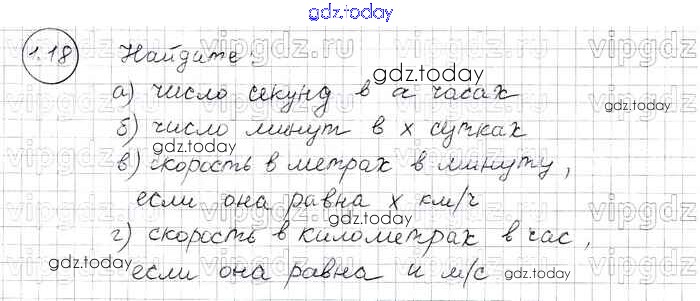 gdz.today
1.18 Найдите:
gdz.today
а) число секунд в а часах
gdz.today
б) число минут в х сутках
gdz.today
в) скорость в метрах в минуту,
если она равна х км/ч
gdz.today
г) скорость в километрах в час,
gdz.today
gdz.today
если она равна и м/с